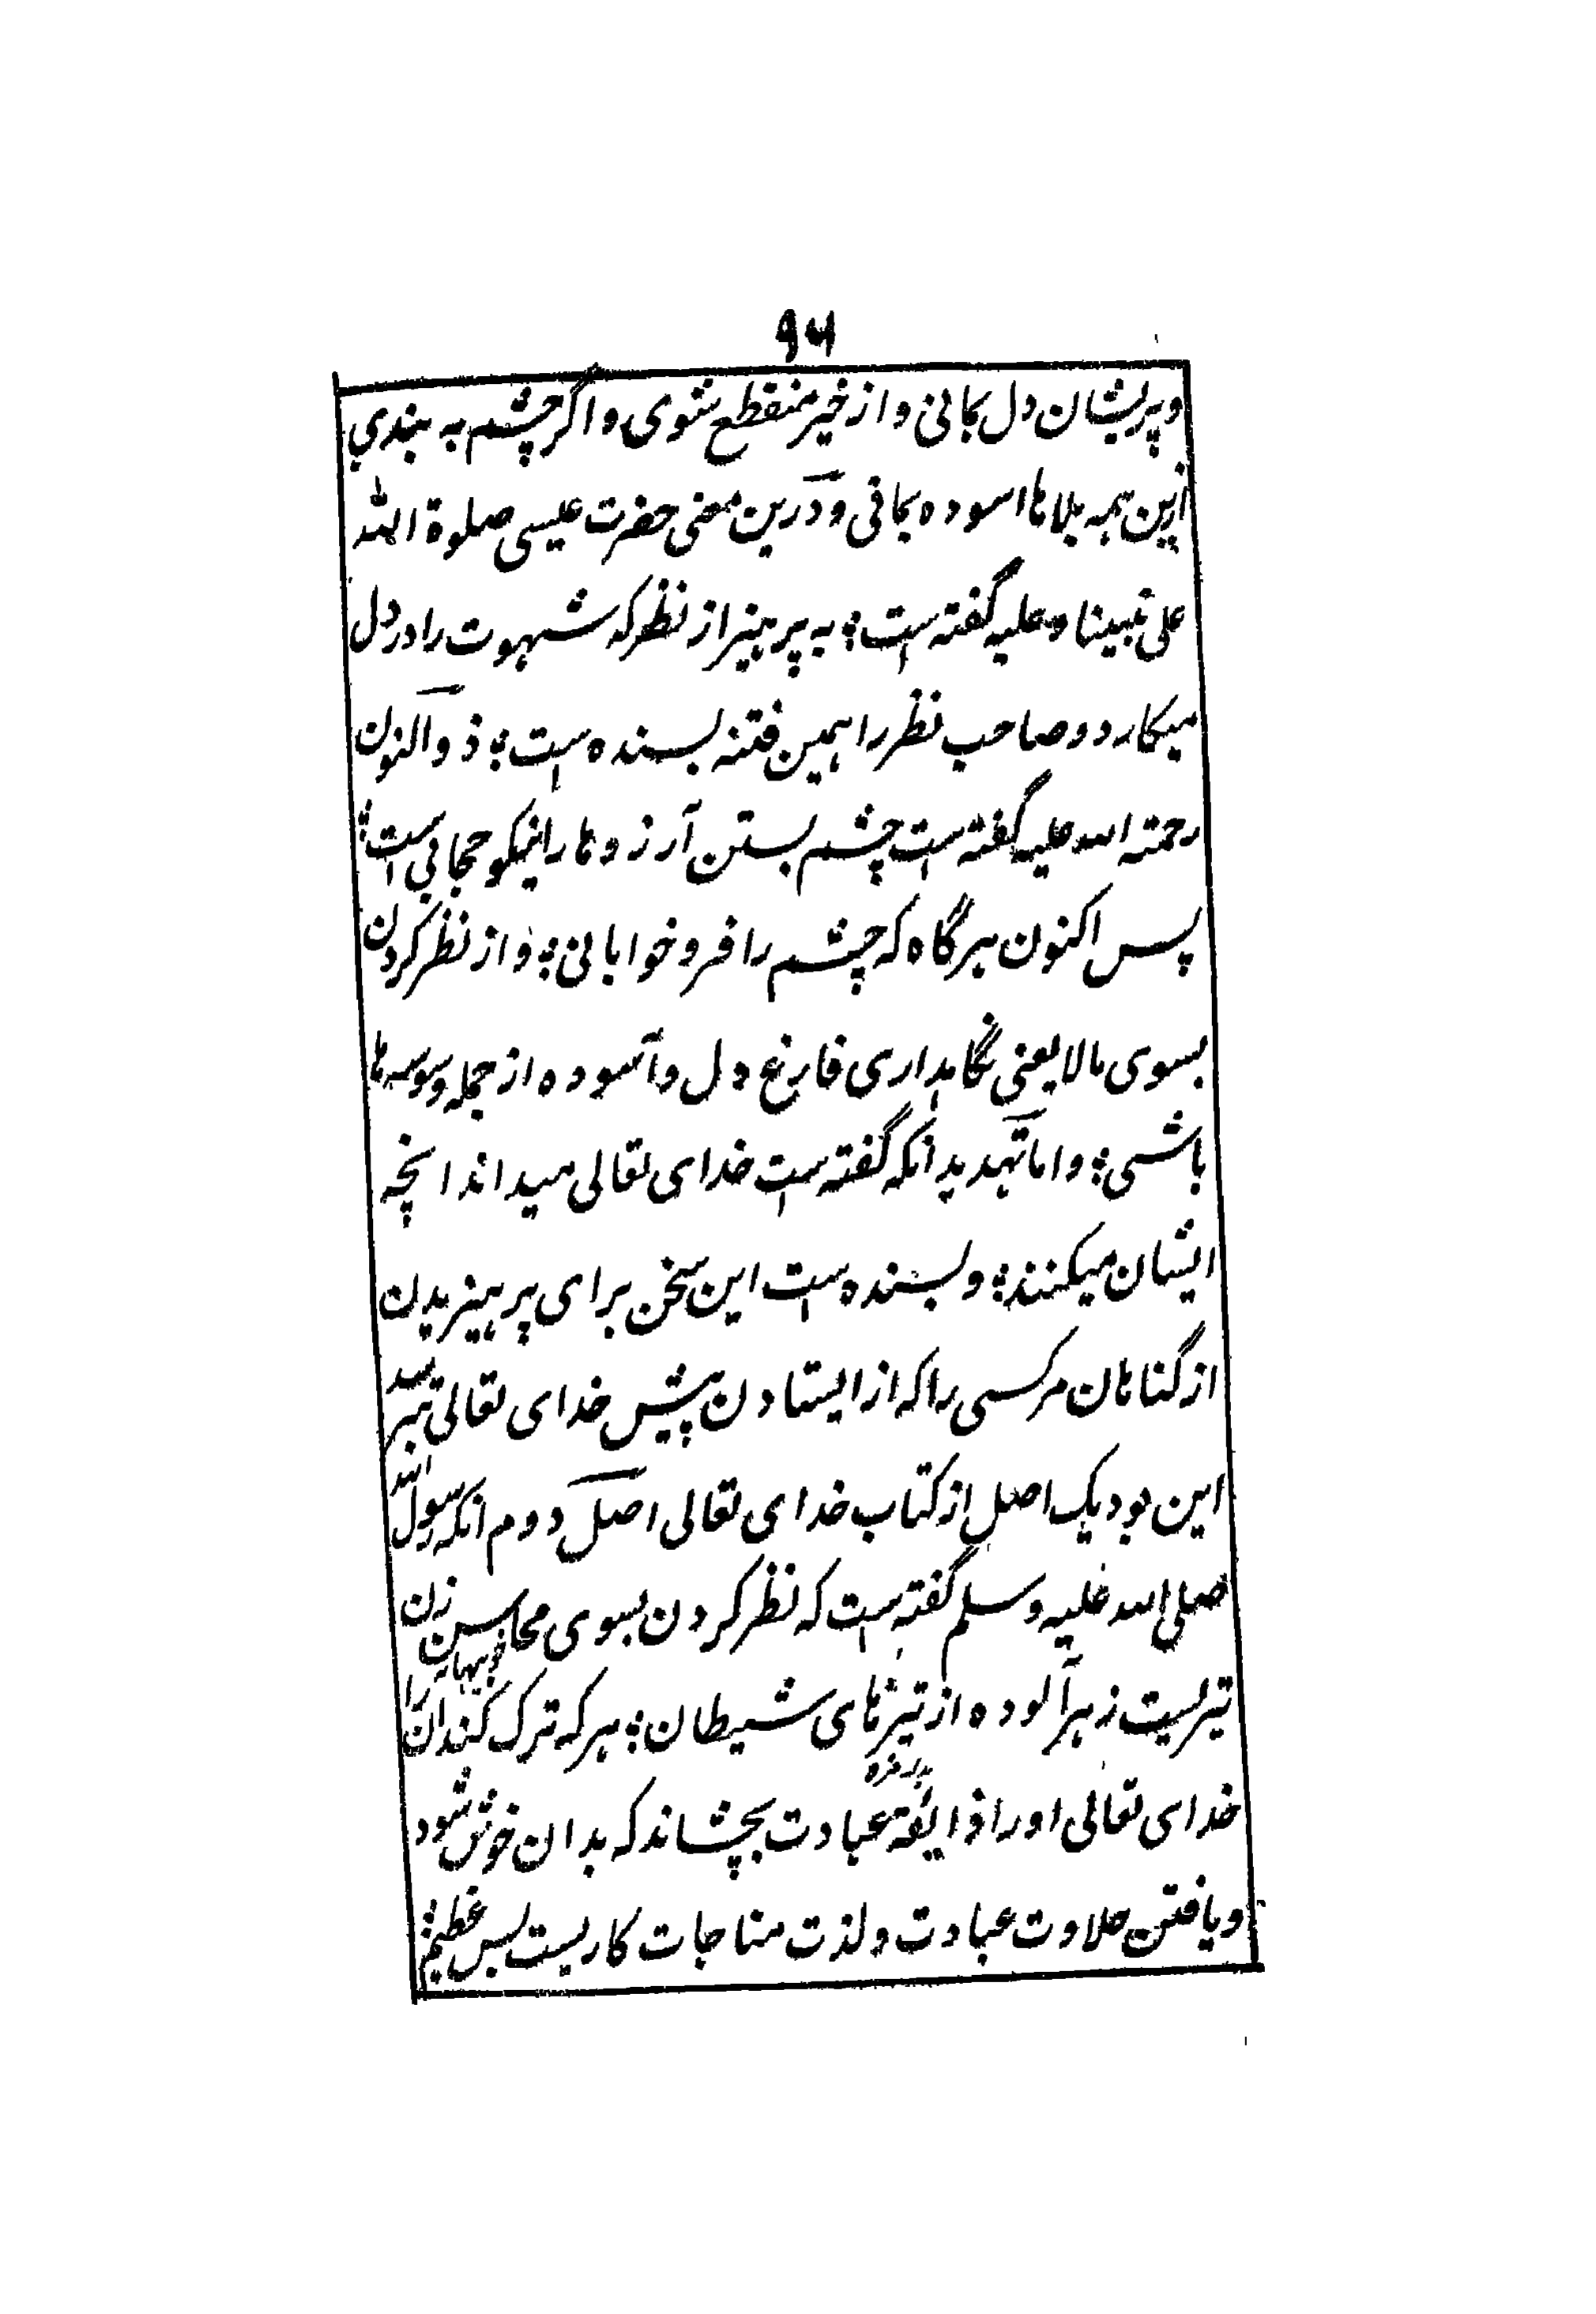 ۹۶
وپریشان دل بمانی و از خیر منقطع شوی و اگر چشم به بندی
ازین همه بلاها اسوده بمانی و درین معنی حضرت عیسی صلوة الله
علی نبینا و علیه گفته است؛ به پرهیز از نظر که شهوت را در دل
میکارد و صاحب نظر را همین فتنه بسنده است؛ ذو النون
رحمته الله علیه گفته است چشم بستن آرزوها را نیکو حجابی است؛
پس اکنون هرگاه که چشم را فرو خوابانی؛ و از نظر کردن
بسوی مالا یعنی نگاهداری فارغ دل و آسوده از جمله وسوسه ها
باشی؛ و اما تهدید انکه گفته است خدای تعالی میداند انچه
ایشان میکنند؛ و بسنده است این سخن برای پرهیزیدن
از گناهان مر کسی را که از ایستادن پیش خدای تعالی بترسد
این بود یک اصل از کتاب خدای تعالی اصل دوم انکه رسول الله
صلی الله علیه و سلم گفته است که نظر کردن بسوی محاسن زن
تیریست زهر آلوده از تیرهای شیطان؛ هر که ترک کند آن را
خدای تعالی او را ذایقهٔ عبادت بچشاند که بدان خوش شود
و یافتن حلاوت عبادت و لذت مناجات کاریست بس عظیم؛